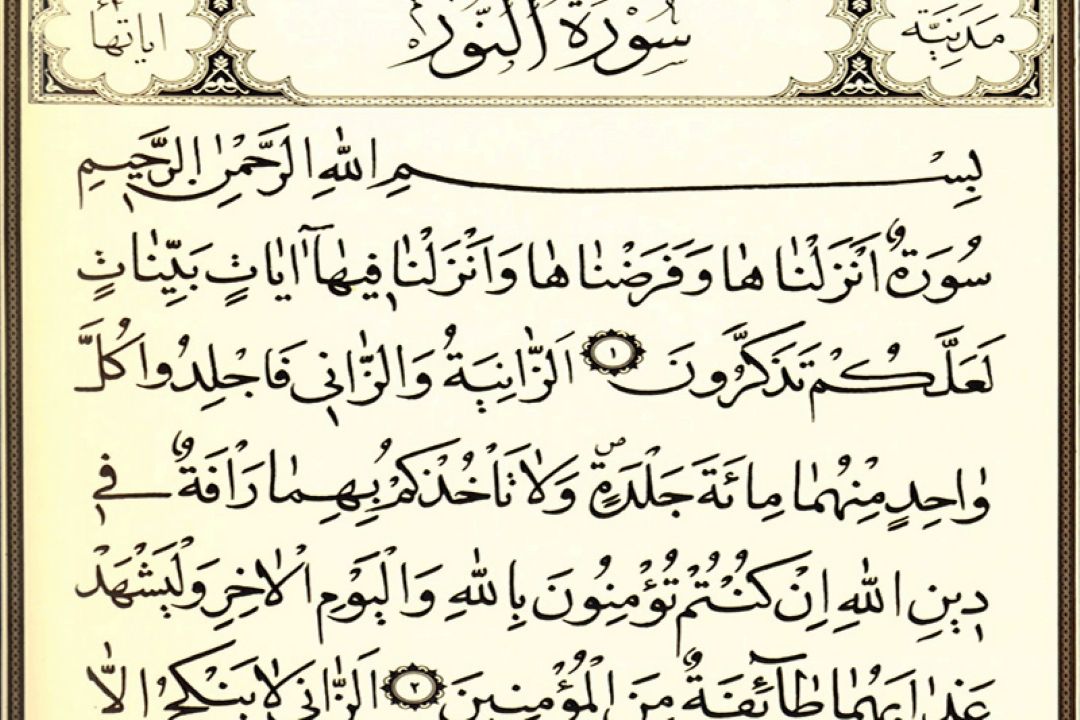 مَدَنِيَّة سُورَةُ النُّورِ اٰيَاتُهَا
بِسْمِ اللّٰهِ الرَّحْمٰنِ الرَّحِيمِ
سُورَةٌ اَنْزَلْنَاهَا وَفَرَضْنَاهَا وَاَنْزَلْنَا فِيهَآ اٰيَاتٍ بَيِّنَاتٍ
لَعَلَّكُمْ تَذَكَّرُونَ ١ اَلزَّانِيَةُ وَالزَّانِي فَاجْلِدُوا كُلَّ
وَاحِدٍ مِنْهُمَا مِائَةَ جَلْدَةٍ ۖ وَلَا تَأْخُذْكُمْ بِهِمَا رَأْفَةٌ فِي
دِينِ اللّٰهِ اِنْ كُنْتُمْ تُؤْمِنُونَ بِاللّٰهِ وَالْيَوْمِ الْاٰخِرِ وَلْيَشْهَدْ
عَذَابَهُمَا طَآئِفَةٌ مِنَ الْمُؤْمِنِينَ ٢ اَلزَّانِي لَا يَنْكِحُ اِلَّا